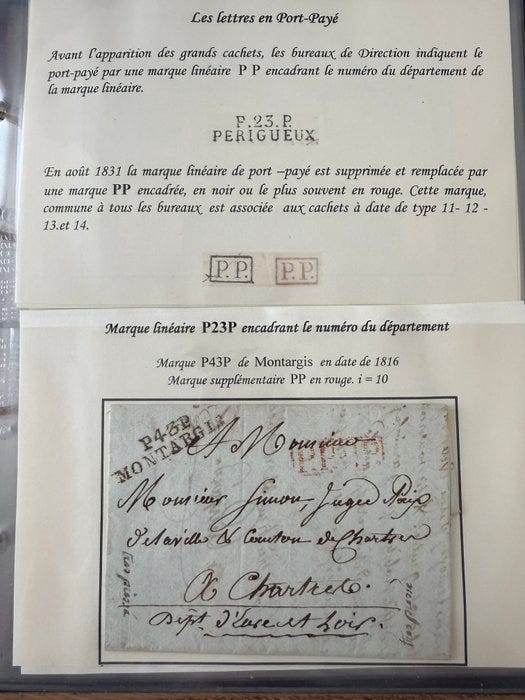 Les lettres en Port-Payé
Avant l'apparition des grands cachets, les bureaux de Direction indiquent le
port-payé par une marque linéaire P P encadrant le numéro du département de
la marque linéaire.
P.23.P.
PERIGUEUX
En août 1831 la marque linéaire de port –payé est supprimée et remplacée par
une marque PP encadrée, en noir ou le plus souvent en rouge. Cette marque,
commune à tous les bureaux est associée aux cachets à date de type 11- 12 -
13.et 14.
P.P. P.P.
Marque linéaire P23P encadrant le numéro du département
Marque P43P de Montargis en date de 1816
Marque supplémentaire PP en rouge. i = 10
P43P
MONTARGIS
A Monsieur
P.P. P.P
Monsieur Simon, Juge de Paix
de la ville & Canton de Chartres
A Chartres.
Dépt. d'Eure et Loir.